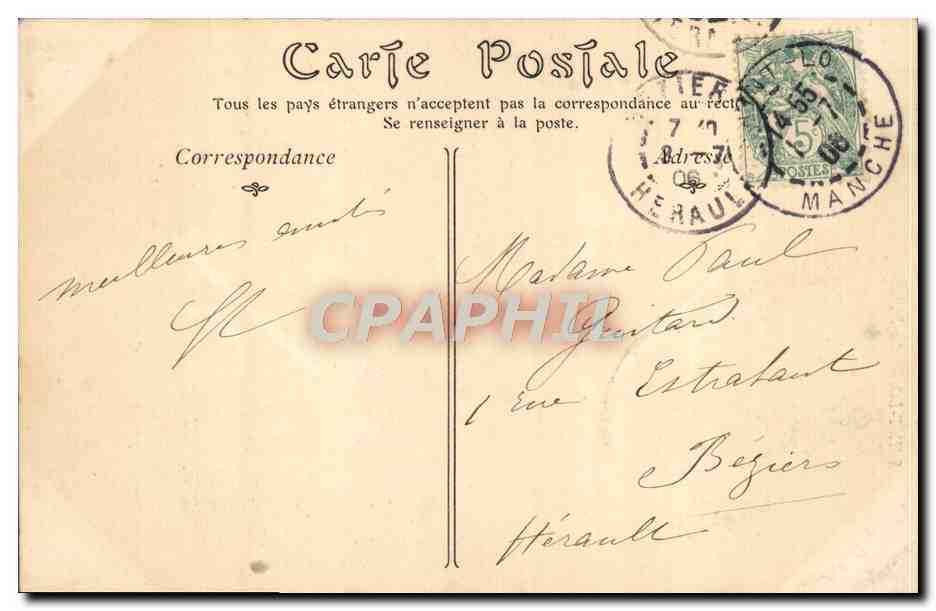 Carte Postale
Tous les pays étrangers n'acceptent pas la correspondance au recto
Se renseigner à la poste.
Correspondance
Adresse
meilleures amitiés
Madame Paul
Guitard
1 rue Estrabaut
Béziers
Hérault
CPAPHIL
5c
POSTES
SAINT-LO
14 55
7
06
MANCHE
7
8 -7
06
HERAULT